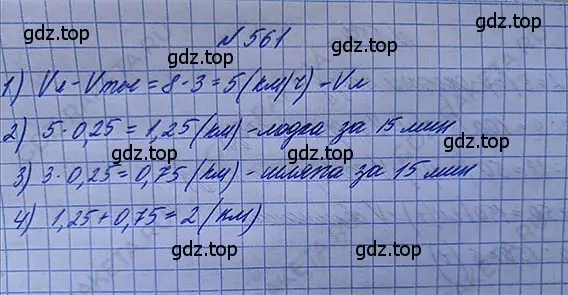 gdz.top gdz.top
№561
gdz.top
1) Vл - Vтеч = 8 - 3 = 5 (км/ч) - Vл
gdz.top gdz.top
2) 5 · 0,25 = 1,25 (км) - лодка за 15 мин
gdz.top
3) 3 · 0,25 = 0,75 (км) - шляпа за 15 мин
gdz.top gdz.top
4) 1,25 + 0,75 = 2 (км)
gdz.top
gdz.top gdz.top